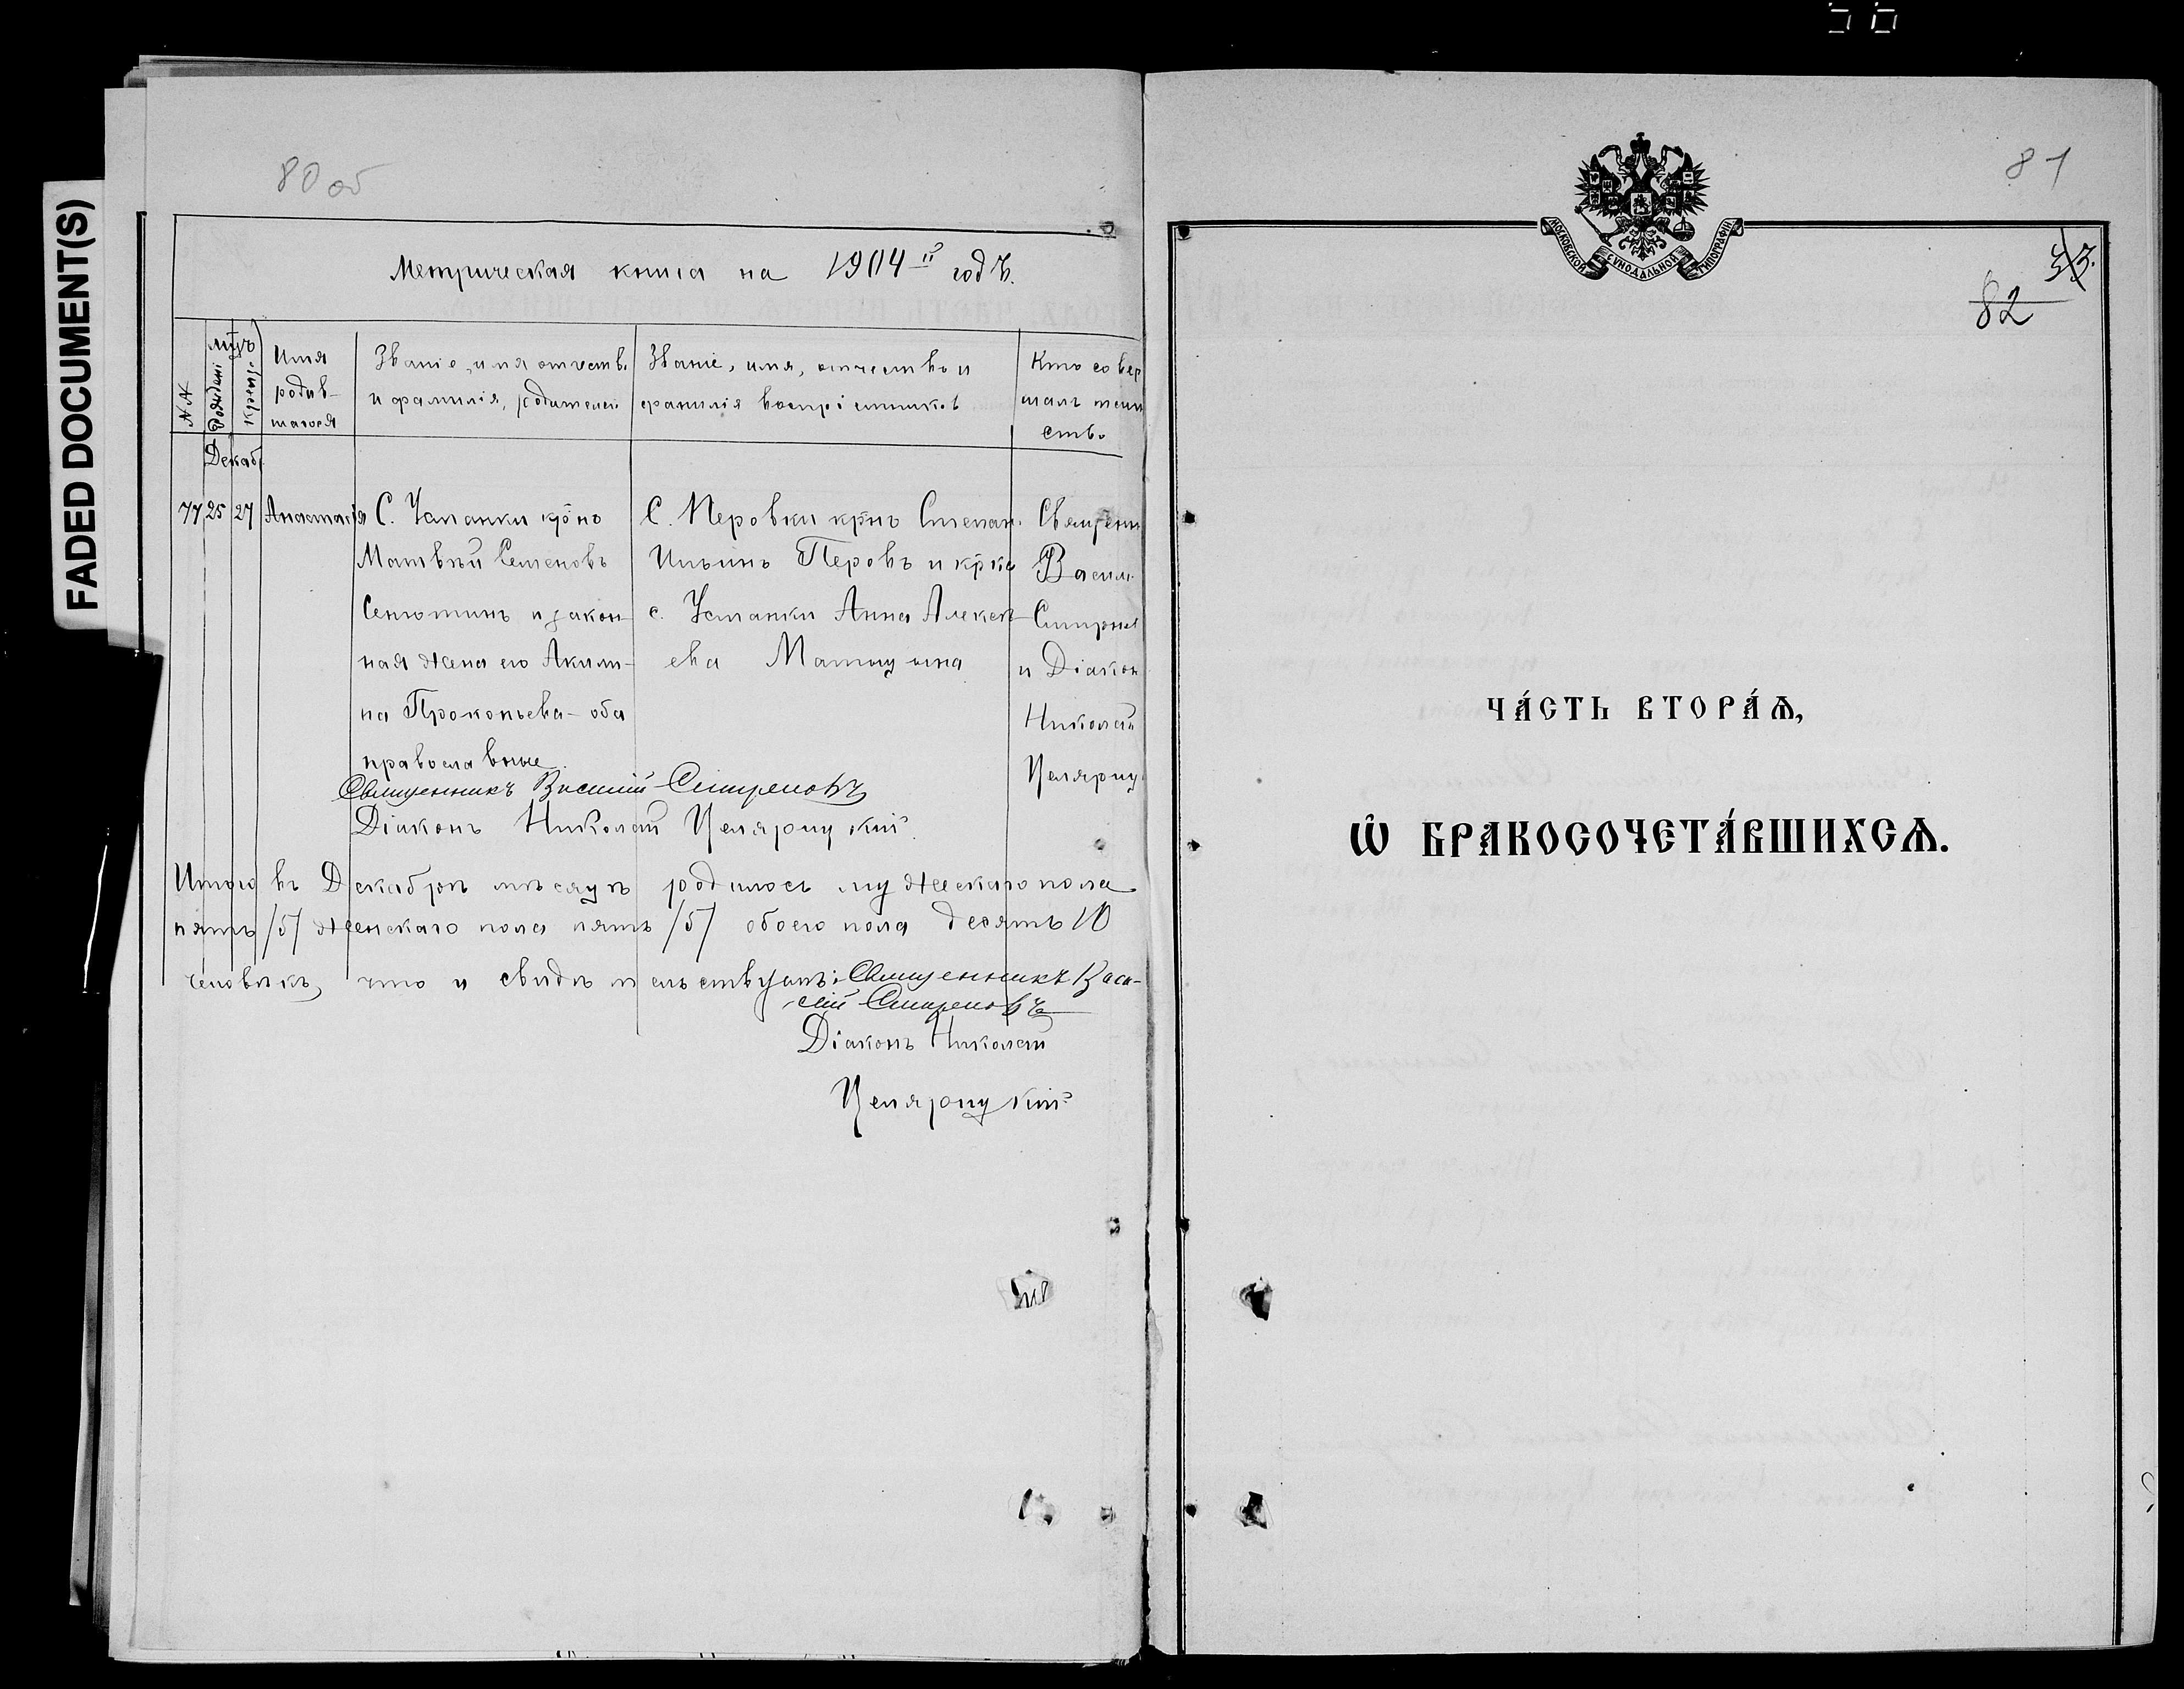 FADED DOCUMENT(S)
80 об
Метрическая книга на 1904 й годъ.
№№
Мцъ
Рождені
Крещ.
Имя
родив-
шагося
Званіе, имя отчеств.
и фамилія, родителей
Званіе, имя, отчество и
фамилія воспріемников
Кто совер
шалъ таин
ство
Декаб
77 25 27 Анастасія
С. Усманки кр̃нъ
Матвѣй Семеновъ
Сенютинъ и закон-
ная жена его Акили-
на Прокопьева - оба
православные.
С. Перовки кр̃нъ Степан.
Ильинъ Перовъ и кр̃ка
с. Усманки Анна Алексѣ-
ева Матюшина
Священ
Васил.
Смирнов
и Діакон
Николай
Целярицк
Священникъ Василій Смирновъ
Діаконъ Николай Целярицкій.
Итого въ Декабрѣ мѣсяцѣ родилось мужескаго пола
пять /5/ женскаго пола пять /5/ обоего пола десять 10
человѣкъ, что и свидѣтельствуютъ: Священникъ Васи-
лій Смирновъ
Діаконъ Николай
Целярицкій
81
МОСКОВСКОЙ СѴНОДАЛЬНОЙ ТИПОГРАФІИ
82
ЧА́СТЬ ВТОРА́Ѧ,
Ѡ҆ БРАКОСОЧЕТА́ВШИХСѦ.